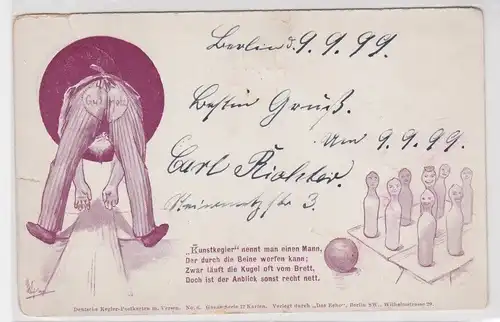 Berlin d. 9.9.99.
Gut Holz
Besten Gruß.
Um 9.9.99.
Carl Richter.
str 3.
„Kunstkegler“ nennt man einen Mann,
Der durch die Beine werfen kann;
Zwar läuft die Kugel oft vom Brett,
Doch ist der Anblick sonst recht nett.
Deutsche Kegler-Postkarten m. Versen. No. 6. Gesamt-Serie 12 Karten. Verlegt durch „Das Echo“, Berlin SW., Wilhelmstrasse 29.